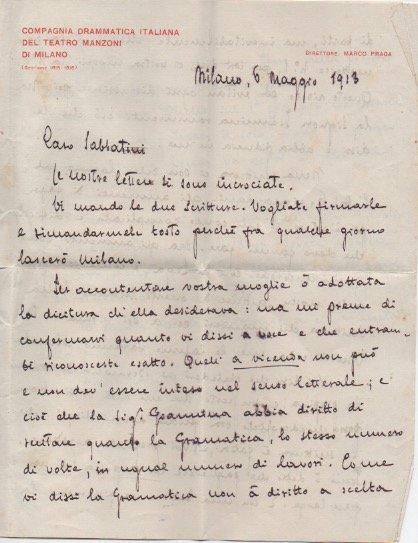 COMPAGNIA DRAMMATICA ITALIANA
DEL TEATRO MANZONI
DI MILANO
DIRETTORE: MARCO PRAGA
Milano, 6 Maggio 1913
Caro Sabbatini
le nostre lettere si sono incrociate.
Vi mando le due Scritture. Vogliate firmarle
e rimandarmele tosto perchè fra qualche giorno
lascerò Milano.
Per accontentare vostra moglie ò adottata
la dicitura ch'ella desiderava: ma mi preme di
confermarvi quanto vi dissi a voce e che entram-
bi riconosceste esatto. Quel a vicenda non può
e non dev'essere inteso nel senso letterale; e
cioè che la Sig.ª abbia diritto di
recitare quanto la Gramatica, lo stesso numero
di volte, in ugual numero di lavori. Come
vi dissi la Gramatica non à diritto a scelta